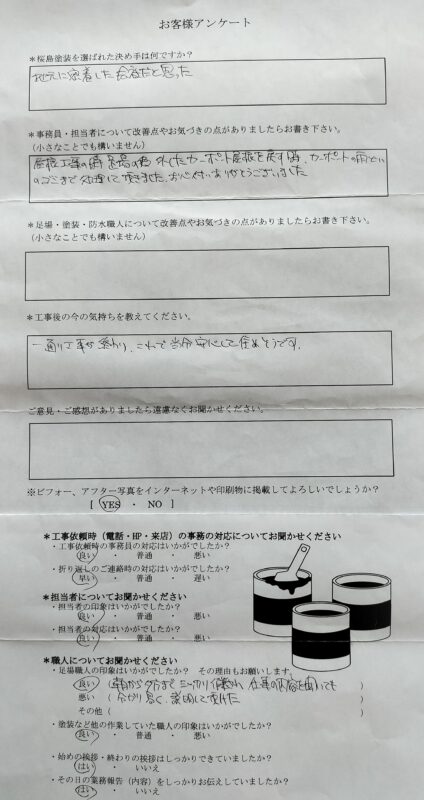 お客様アンケート
*桜島塗装を選ばれた決め手は何ですか?
地元に密着した会社だと思った
*事務員・担当者について改善点やお気づきの点がありましたらお書き下さい。
(小さなことでも構いません)
屋根工事の時足場の為外したカーポート屋根を戻す時、カーポートの雨どい
のゴミまで処理して頂きました。お心付いありがとうございました。
*足場・塗装・防水職人について改善点やお気づきの点がありましたらお書き下さい。
(小さなことでも構いません)
*工事後の今の気持ちを教えてください。
一通り工事が終わり、これで当分安心して住めそうです。
ご意見・ご感想がありましたら遠慮なくお聞かせください。
※ビフォー、アフター写真をインターネットや印刷物に掲載してよろしいでしょうか?
[ YES ・ NO ]
*工事依頼時(電話・HP・来店)の事務の対応についてお聞かせください
・工事依頼時の事務員の対応はいかがでしたか?
良い ・ 普通 ・ 悪い
・折り返しのご連絡時の対応はいかがでしたか?
早い ・ 普通 ・ 遅い
*担当者についてお聞かせください
・担当者の印象はいかがでしたか?
良い ・ 普通 ・ 悪い
・担当者の対応はいかがでしたか?
良い ・ 普通 ・ 悪い
*職人についてお聞かせください
・足場職人の印象はいかがでしたか? その理由もお願いします。
良い (朝から夕方までシッカリ働かれ、仕事の内容を聞いても )
悪い ( 分かり易く、説明して頂けた )
その他 ( )
・塗装など他の作業していた職人の印象はいかがでしたか?
良い ・ 普通 ・ 悪い
・始めの挨拶・終わりの挨拶はしっかりできていましたか?
はい ・ いいえ
・その日の業務報告(内容)をしっかりお伝えしていましたか?
はい ・ いいえ